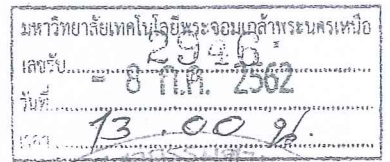 มหาวิทยาลัยเทคโนโลยีพระจอมเกล้าพระนครเหนือ
เลขรับ 2946
วันที่ - 8 ก.ค. 2562
เวลา 13.00 น.